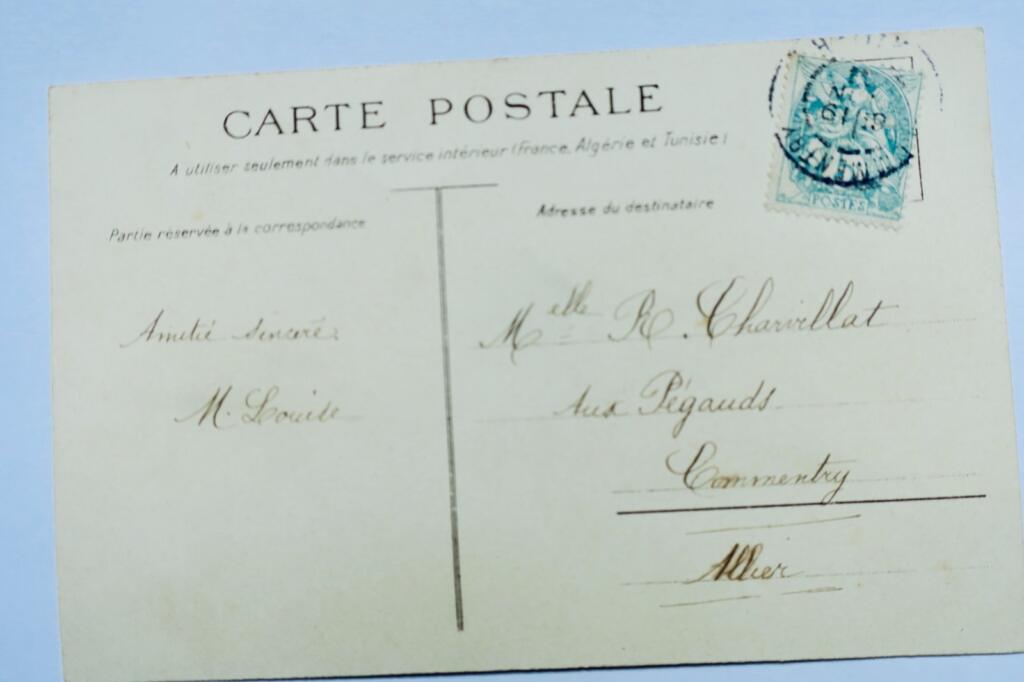 CARTE POSTALE
A utiliser seulement dans le service intérieur (France, Algérie et Tunisie)
Partie réservée à la correspondance
Adresse du destinataire
POSTES
Amitié sincère
M. Louise
Melle R. Charvillat
Aux Pégauds
Commentry
Allier